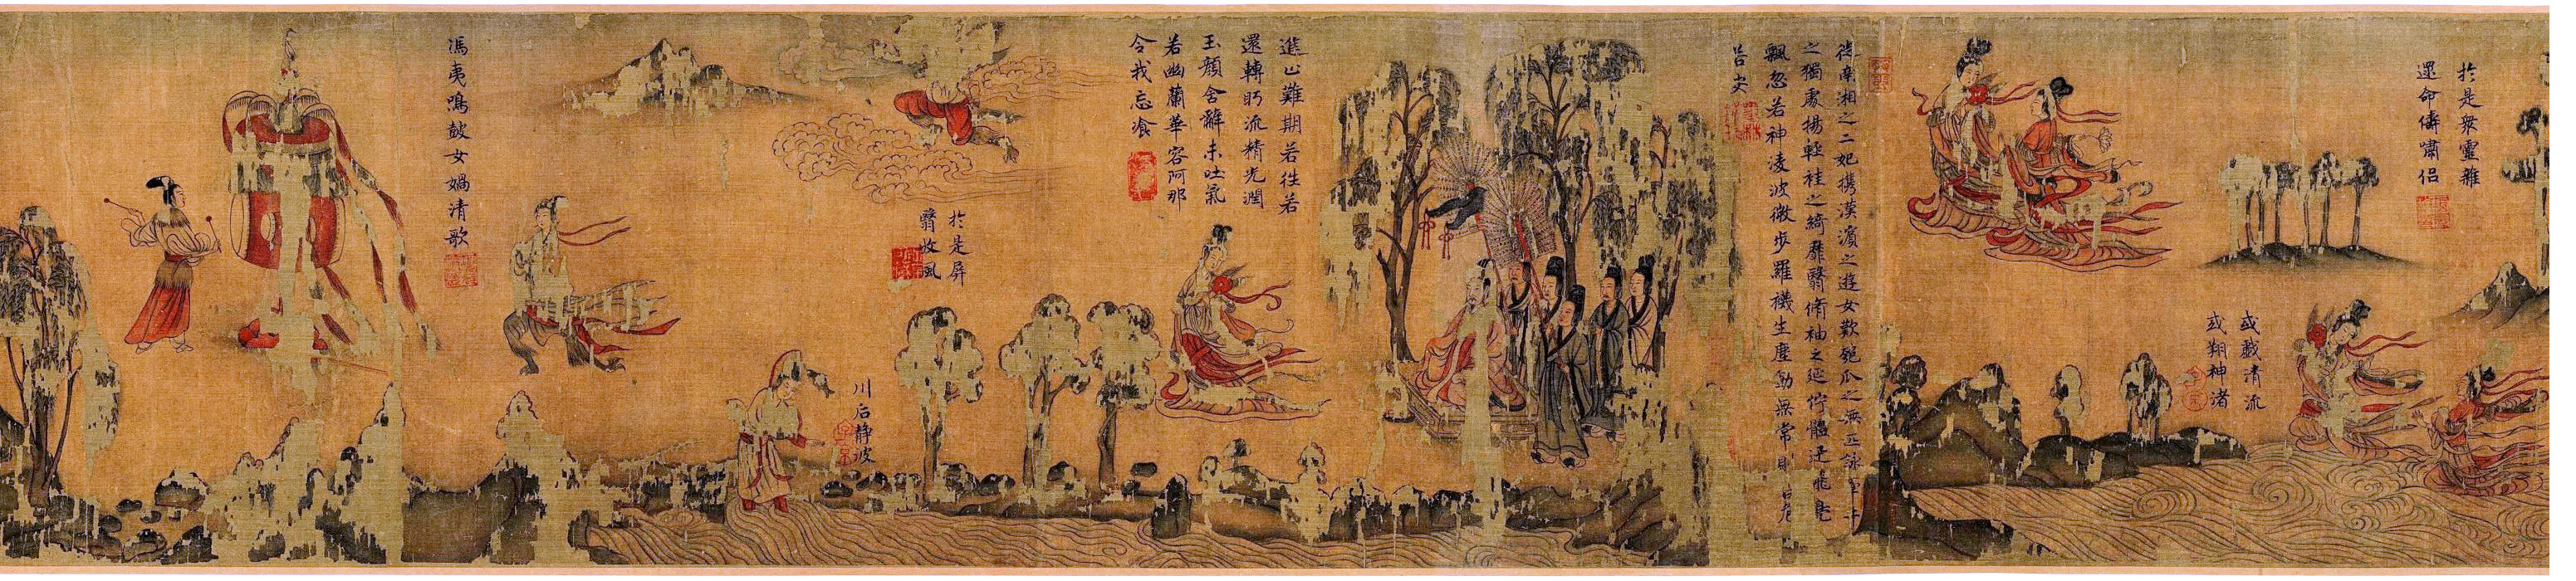 於是衆靈雜
遝命儔嘯侶
或戲清流
或翔神渚
從南湘之二妃携漢濱之遊女歎匏瓜之無匹詠牛
之獨處揚輕袿之綺靡翳脩袖之延佇體迅飛鳧
飄忽若神凌波微步羅襪生塵動無常則危
進止難期若往若
還轉眄流精光潤
玉顏含辭未吐氣
若幽蘭華容阿那
令我忘飡
於是屏
翳收風
川后静波
馮夷鳴鼓女媧清歌